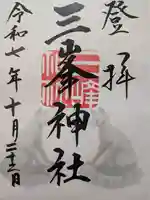 登拝
三峯神社
令和七年十月二十三日